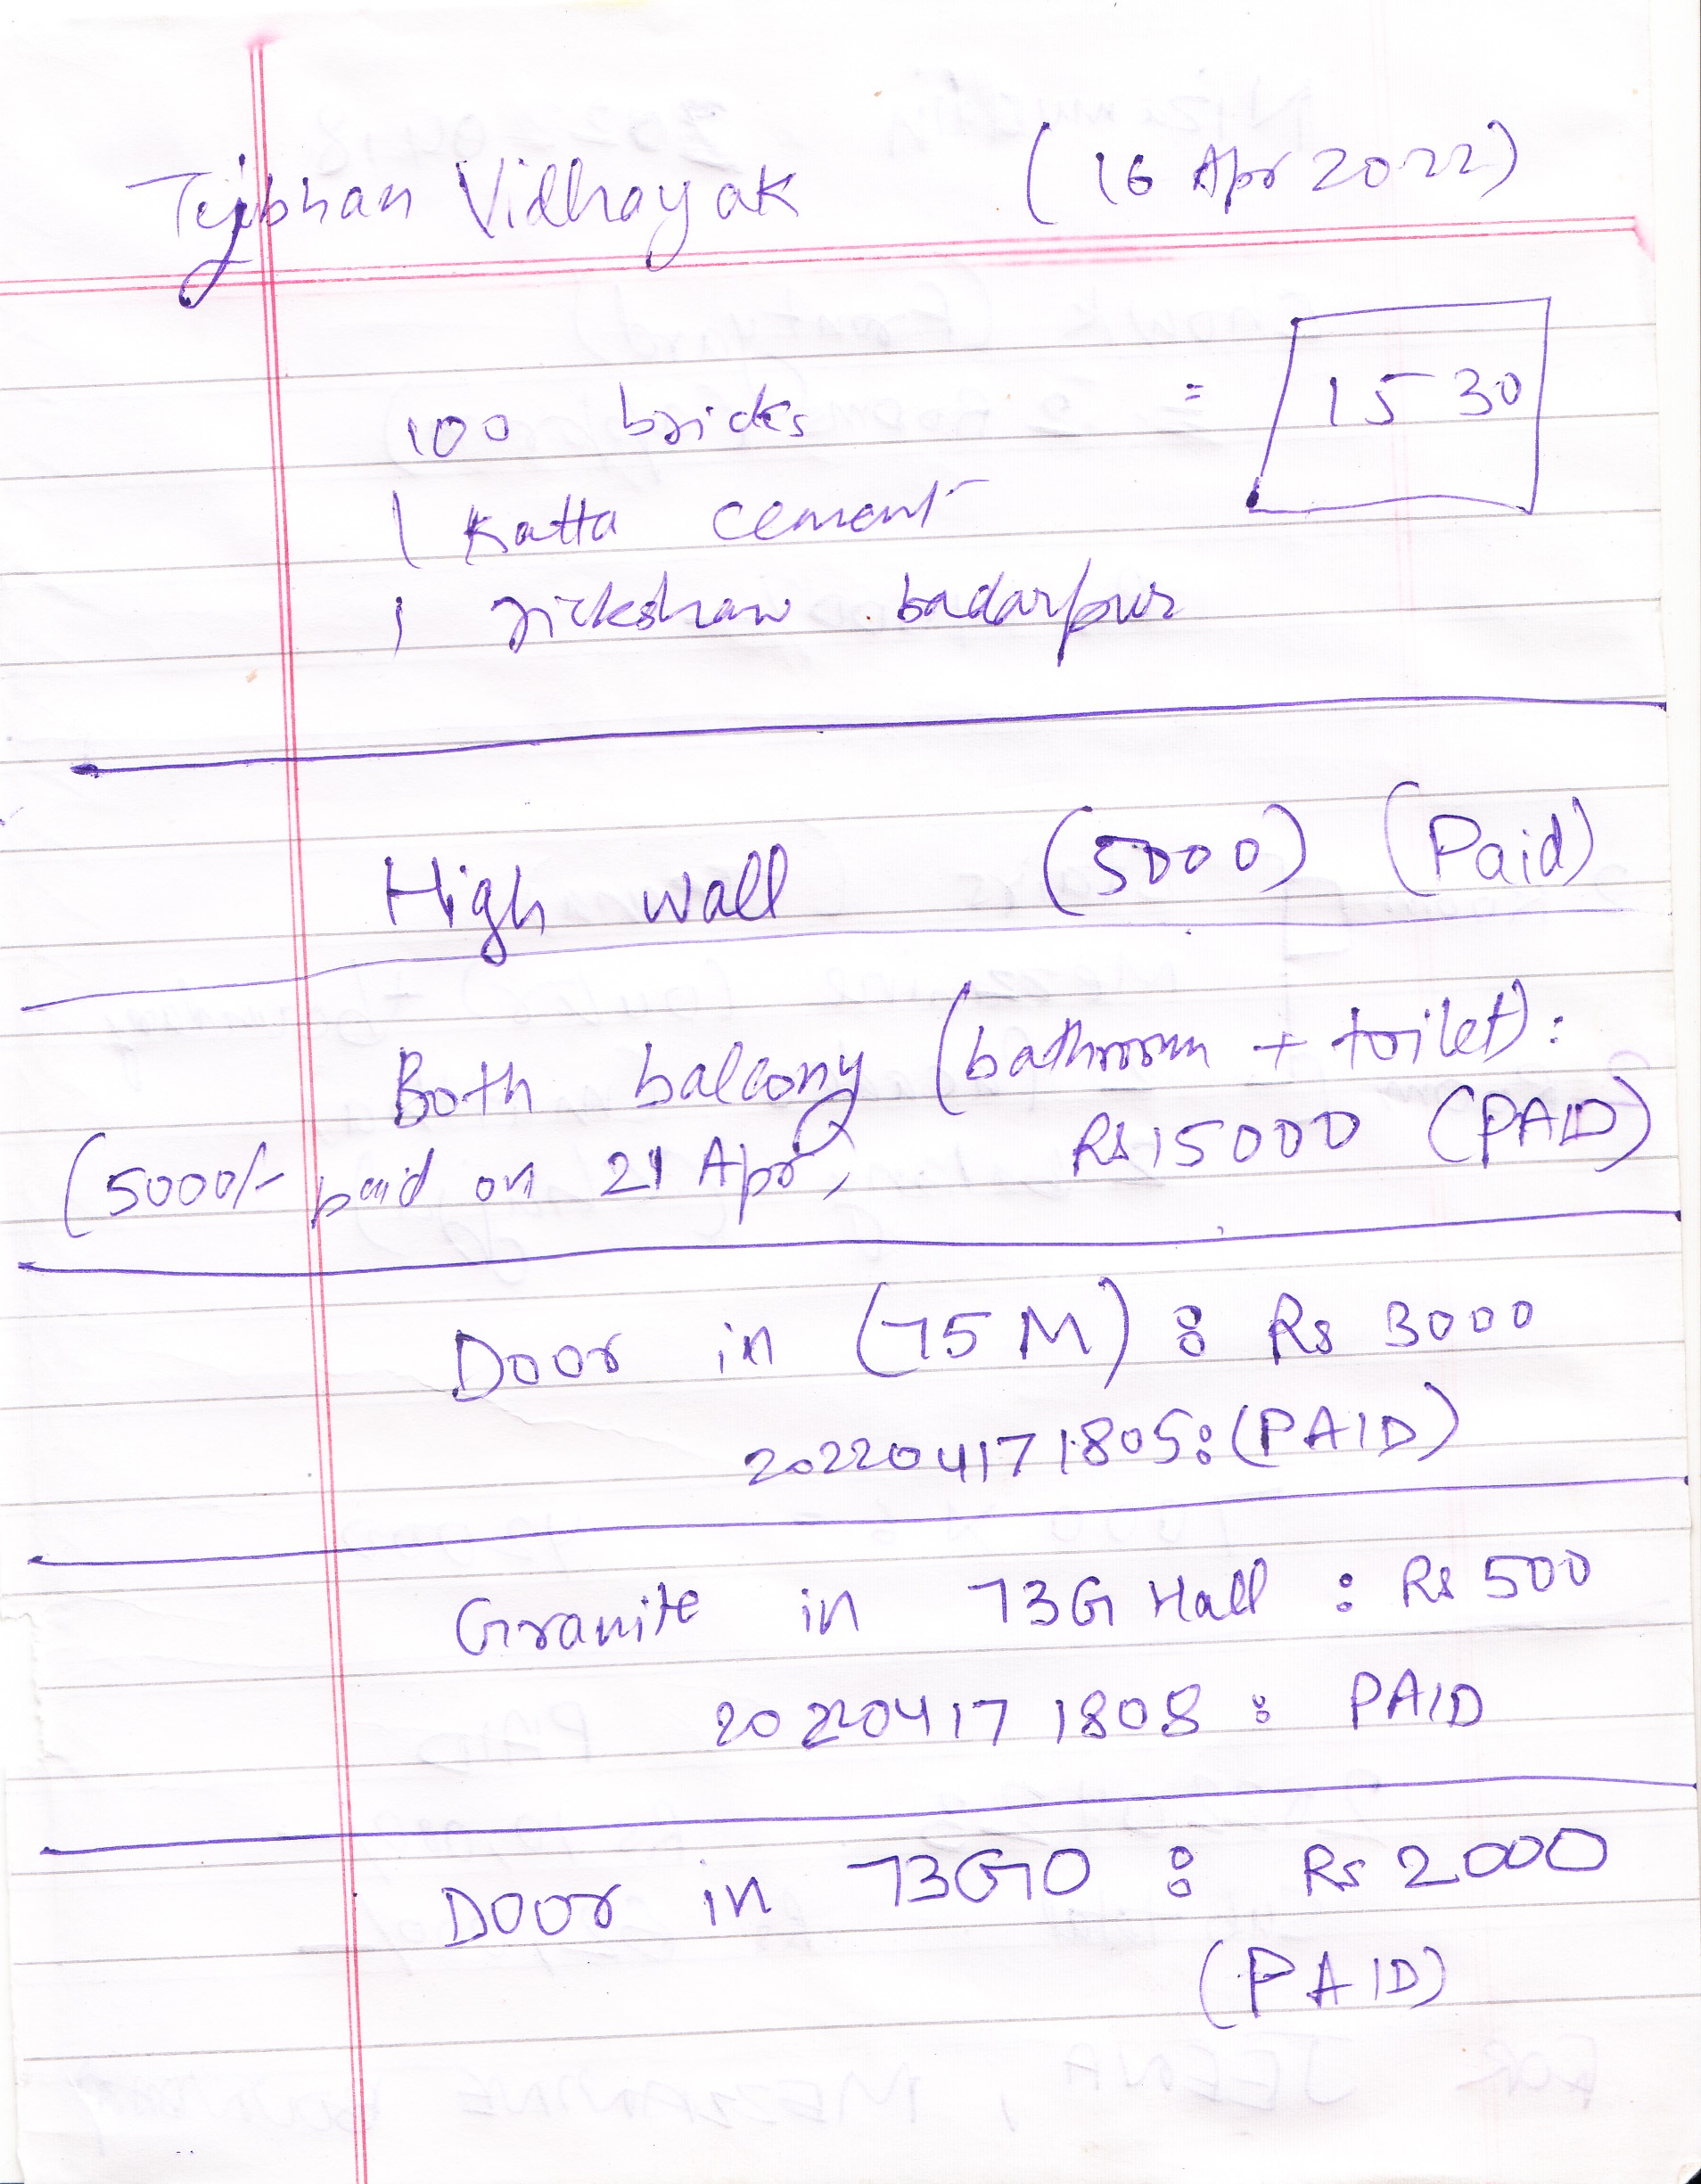 Tejbhan Vidhayak (16 Apr 2022)
100 bricks = 1530
1 Katta cement
1 rickshaw badarpur
High wall (5000) (Paid)
Both balcony (bathroom + toilet):
(5000/- paid on 21 Apr, Rs 15000 (PAID)
Door in (75 M) : Rs 3000
202204171805:(PAID)
Granite in 73G Hall : Rs 500
20220417 1808 : PAID
Door in 73GO : Rs 2000
(PAID)